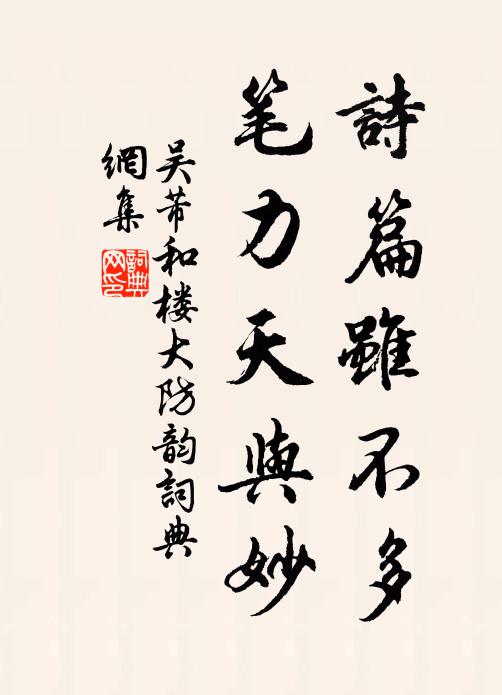 詩篇雖不多
笔力天與妙
吴芾和楼大防韵詞典
網集
詞典网印